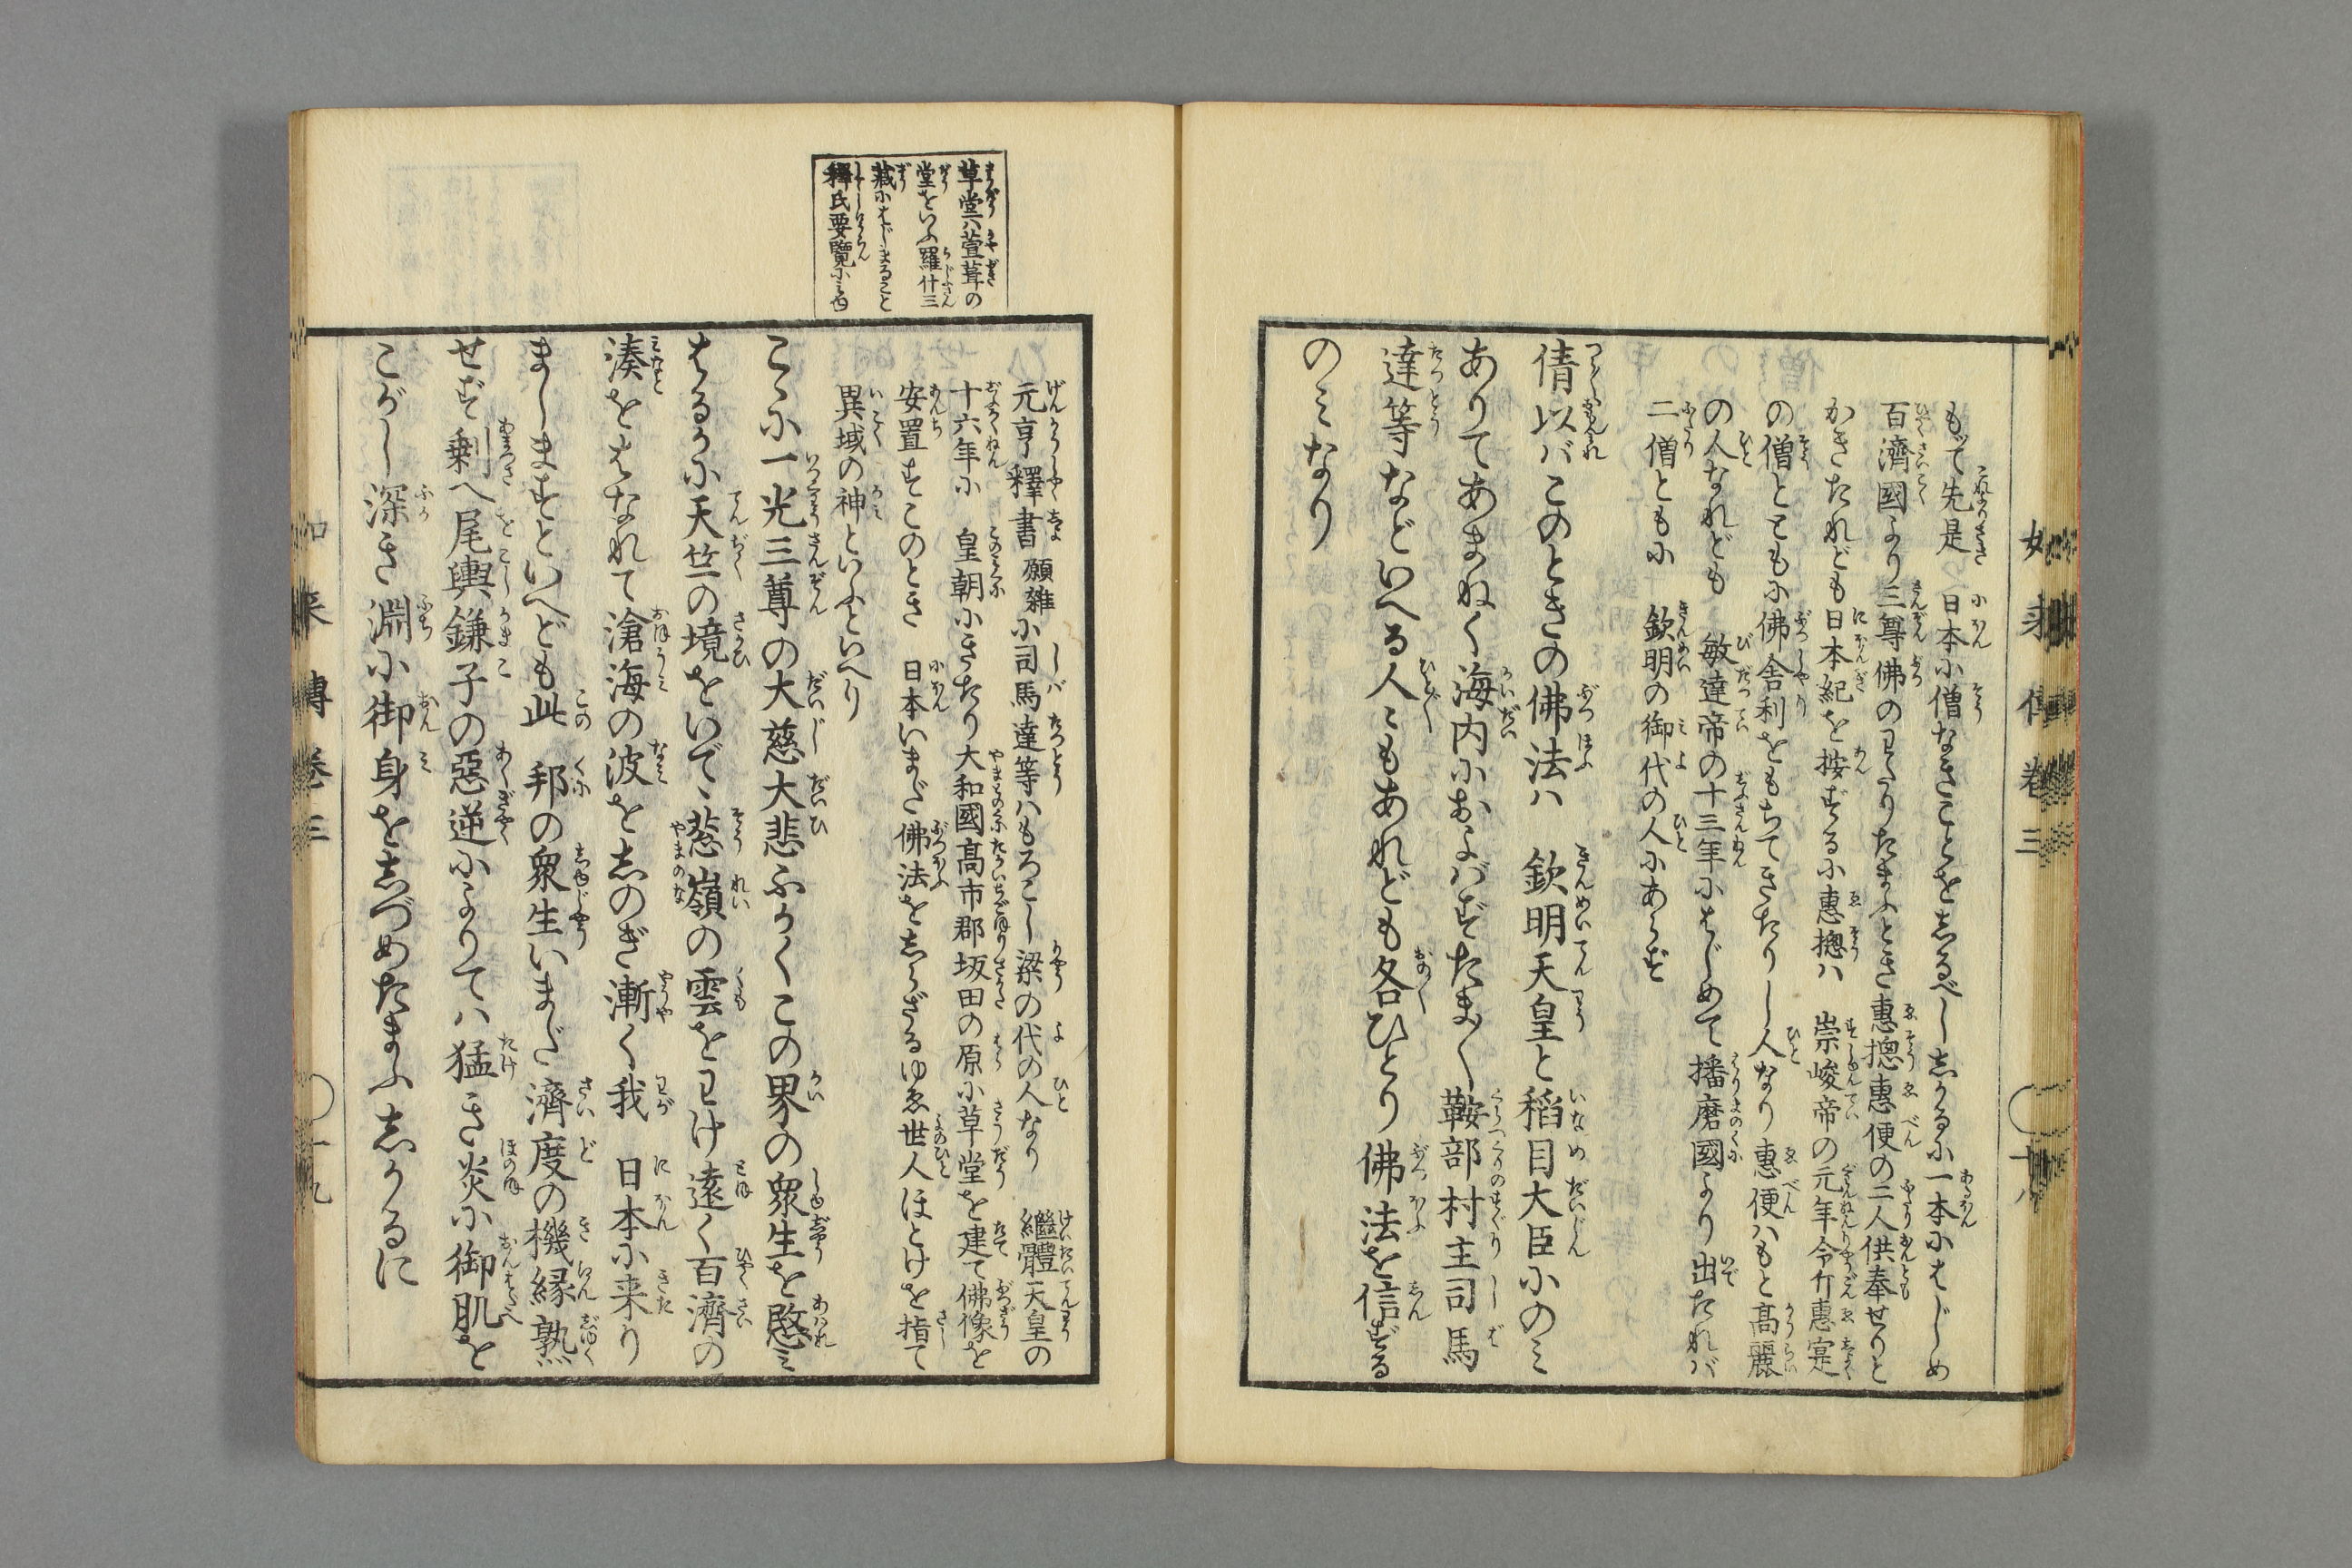 如来傳卷三
十八
もつて先是　日本に僧なきことをしるべししかるに一本にはじめ
百濟國より三尊佛のわたりたまふとき惠摠惠便の二人供奉せりと
かきたれども日本紀を按ずるに惠摠ハ　崇峻帝の元年令斤惠寔
の僧とともに佛舎利をもちてきたりし人なり惠便ハもと高麗
の人なれども　敏達帝の十三年にはじめて播磨國より出たれバ
二僧ともに　欽明の御代の人にあらず
倩以バこのときの佛法ハ　欽明天皇と稻目大臣にのミ
ありてあまねく海内におよバずたま〱鞍部村主司馬
達等などいへる人〻もあれども各ひとり佛法を信ずる
のミなり
草堂ハ萱葺の
堂をいふ羅什三
藏にはじまること
釋氏要覽にミゆ
元亨釋書願雜に司馬達等ハもろこし梁の代の人なり　繼體天皇の
十六年に　皇朝にきたり大和國高市郡坂田の原に草堂を建て佛像を
安置すこのとき　日本いまだ佛法をしらざるゆゑ世人ほとけを指て
異域の神といふといへり
こゝに一光三尊の大慈大悲ふかくこの界の衆生を愍ミ
はるかに天竺の境をいで〻葱嶺の雲をわけ遠く百濟の
湊をはなれて滄海の波をしのぎ漸く我　日本に来り
ましますといへども此　邦の衆生いまだ濟度の機縁熟
せず剰へ尾輿鎌子の惡逆によりてハ猛き炎に御肌を
こがし深き淵に御身をしづめたまふしかるに
如来傳卷三
十九